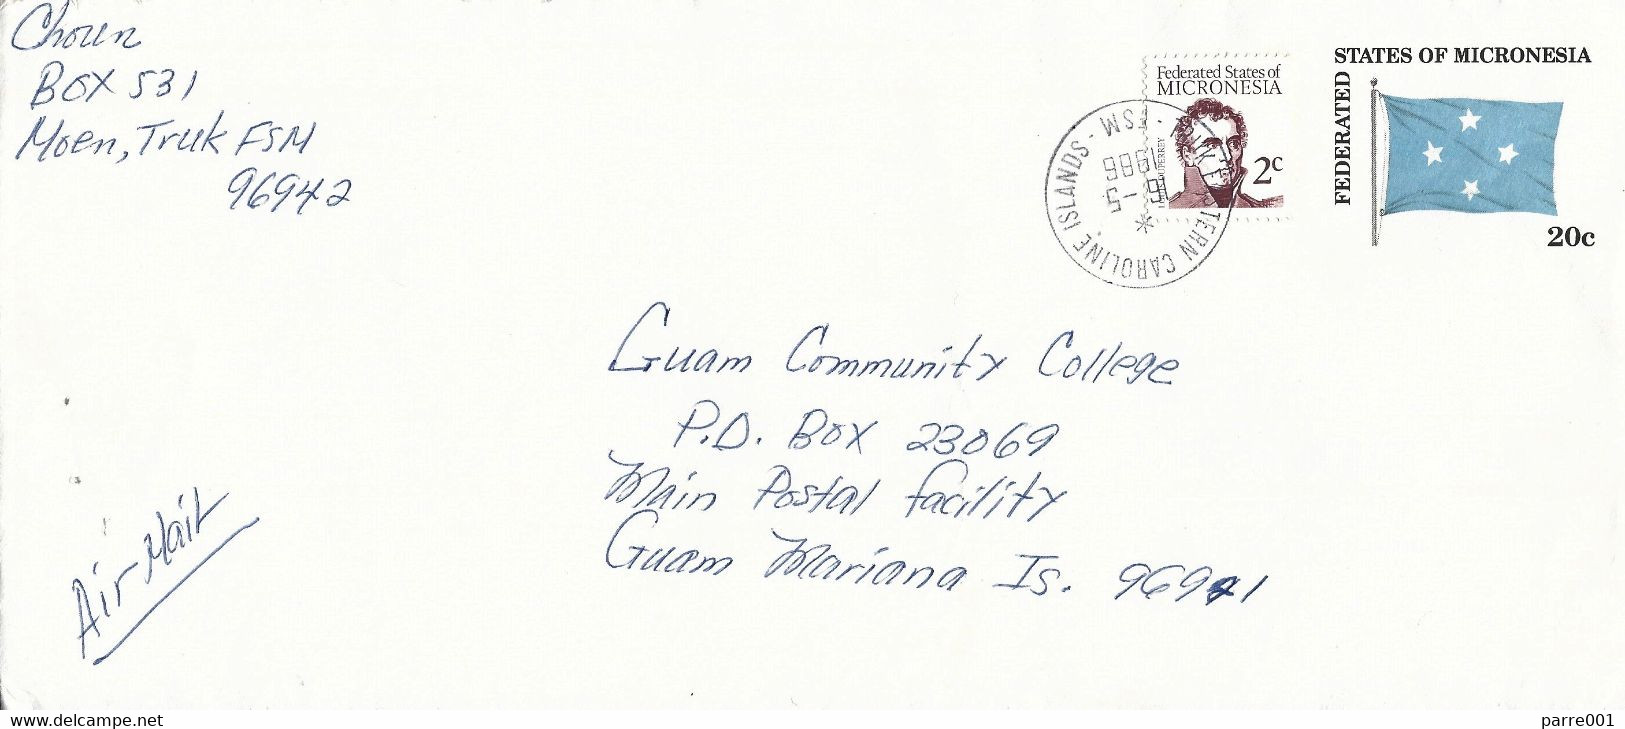 Choun
Box 531
Moen, Truk FSM
96942
Federated States of
MICRONESIA
2c
FEDERATED
STATES OF MICRONESIA
20c
TRUK EASTERN CAROLINE ISLANDS - FSM -
1986
Guam Community College
P.O. Box 23069
Main Postal Facility
Guam Mariana Is. 96941
Air Mail
www.delcampe.net
parre001